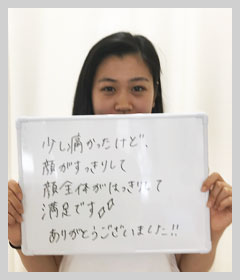 少し痛かったけど、
顔がすっきりして
顔全体がはっきりして
満足です♪♪
ありがとうございました!!